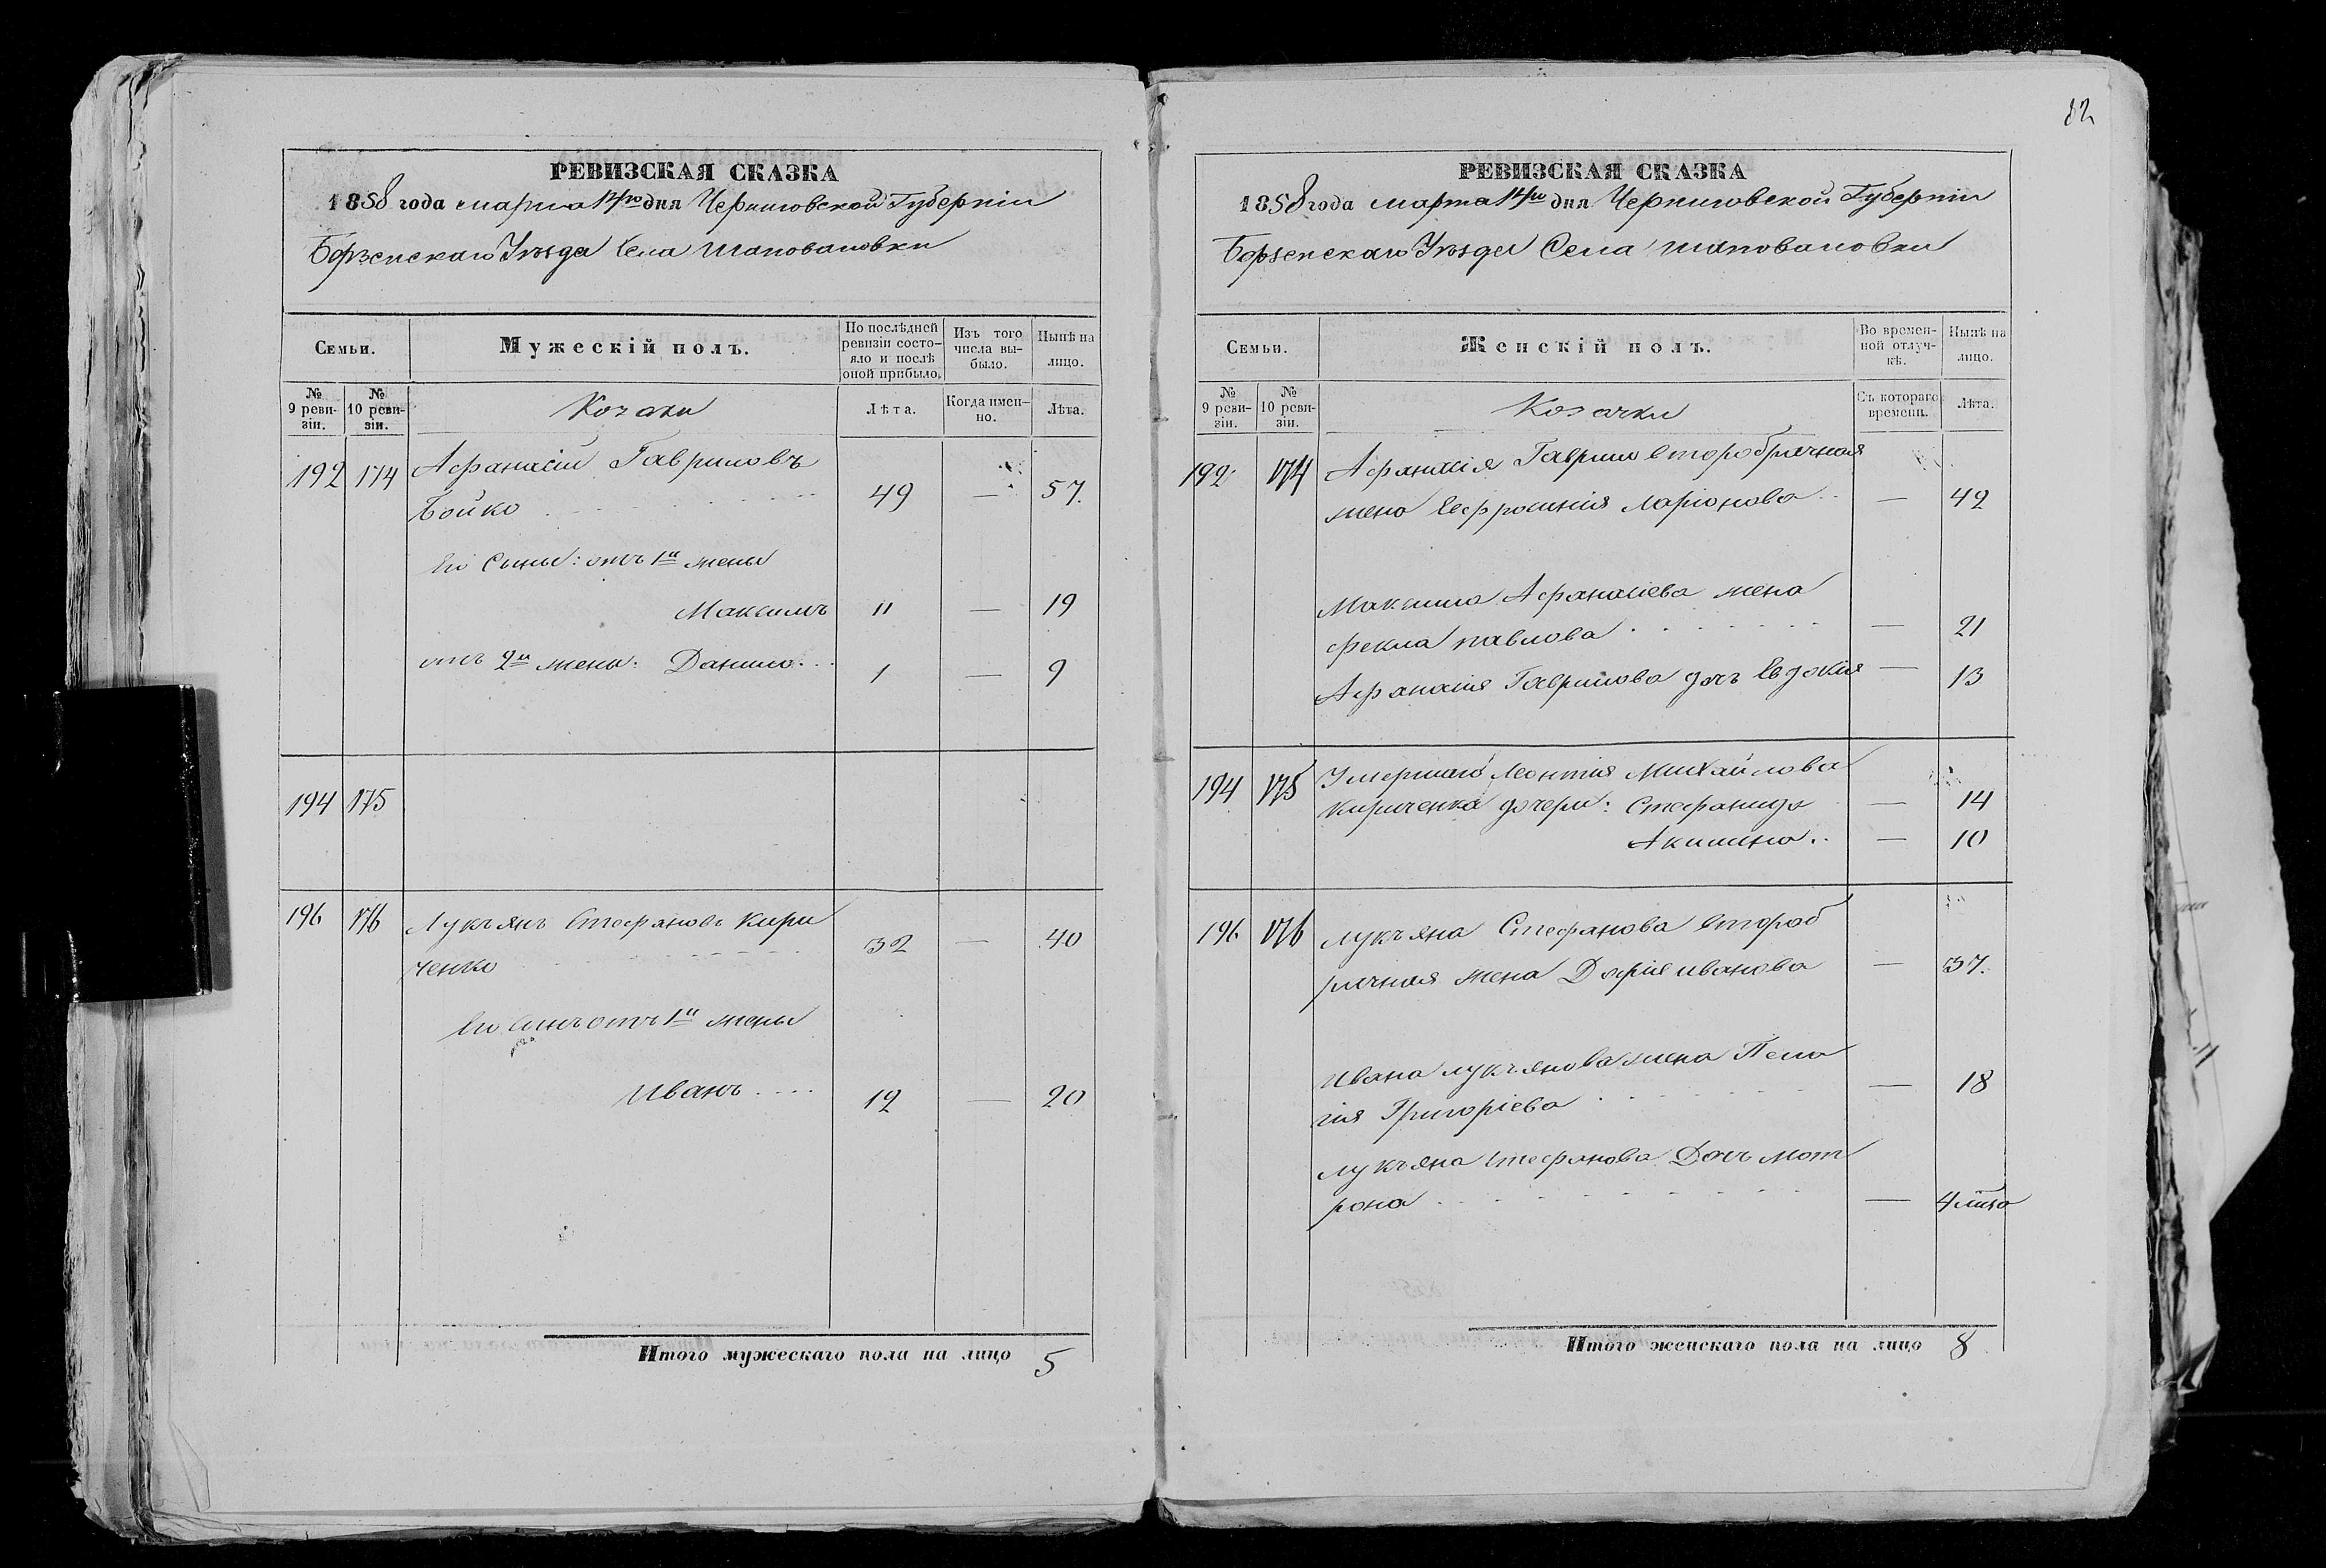 РЕВИЗСКАЯ СКАЗКА
1858 года марта 14го дня Черниговской Губерніи
Борзенскаго Уѣзда Села Шаповаловки
Семьи.
Мужескій полъ.
По послѣдней ревизіи состояло и послѣ оной прибыло.
Изъ того числа выбыло.
Нынѣ на лицо.
№ 9 ревизіи.
№ 10 ревизіи.
Козаки
Лѣта.
Когда именно.
Лѣта.
192 174 Афанасій Гавриловъ
Бойко 49 — 57.
Его Сыны: отъ 1й жены
Максимъ 11 — 19
отъ 2й жены: Данило... 1 — 9
194 175
196 176 Лукъянъ Стефановъ Кири
ченко 32 — 40
Его Сынъ отъ 1й жены
Иванъ .... 12 — 20
Итого мужескаго пола на лицо 5
82
РЕВИЗСКАЯ СКАЗКА
1858 года марта 14го дня Черниговской Губерніи
Борзенскаго Уѣзда Села Шаповаловки
Семьи.
Женскій полъ.
Во временной отлучкѣ.
Нынѣ на лицо.
№ 9 ревизіи.
№ 10 ревизіи.
Козачки
Съ котораго времени.
Лѣта.
192 174 Афанасія Гаврилова второбрачная
жена Евфросинія Ларіонова .. — 42
Максима Афанасіева жена
Фекла Павлова — 21
Афанасія Гаврилова дочь Евдокія — 13
194 175 Умершаго Леонтія Михайлова
Кириченка дочери: Стефанида — 14
Акилина .. — 10
196 176 Лукъяна Стефанова второб
рачная жена Дарія Иванова — 37.
Ивана Лукъянова жена Пела
гия Григоріева — 18
Лукъяна Стефанова Дочь Мот
рона — 4
Итого женскаго пола на лицо 8